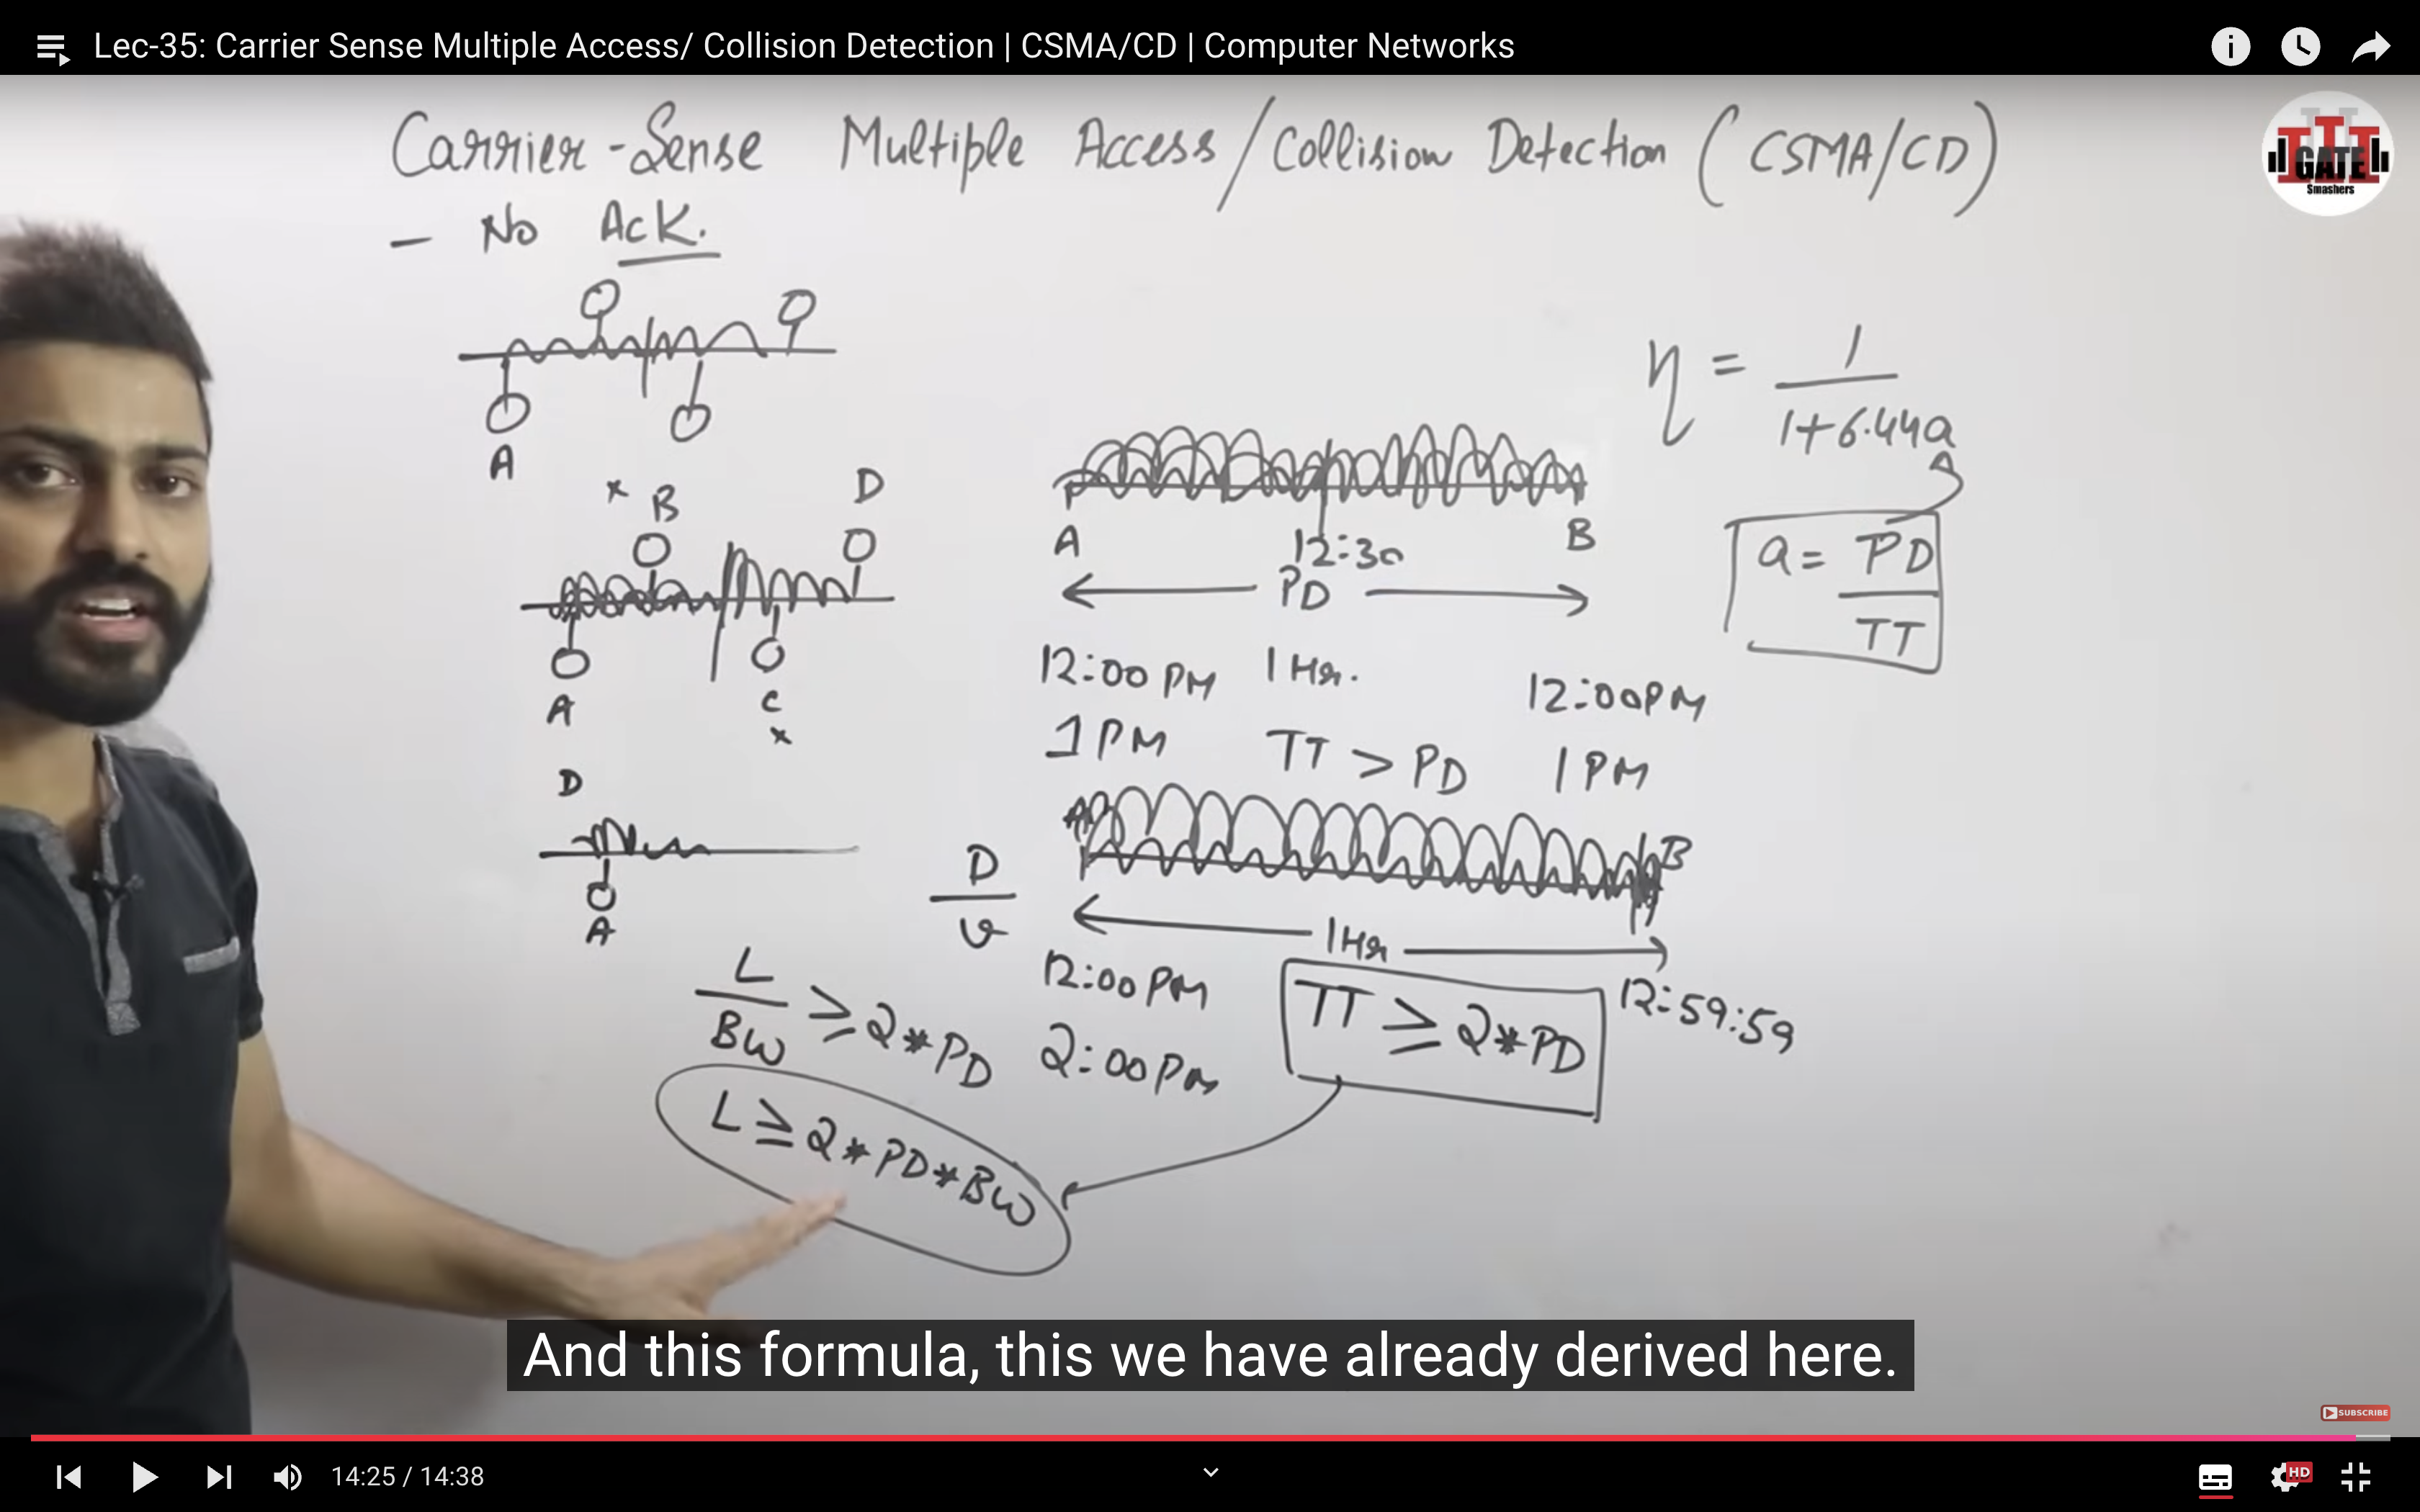 Lec-35: Carrier Sense Multiple Access/ Collision Detection | CSMA/CD | Computer Networks
GATE
Smashers
Carrier-Sense Multiple Access/Collision Detection (CSMA/CD)
- No Ack.
A
* B
D
A
C
*
D
A
A
B
12:30
PD
12:00 PM
1 Hr.
12:00PM
1 PM
TT > PD
1 PM
A
B
1Hr
12:00 PM
12:59:59
2:00 PM
TT ≥ 2*PD
D
v
L
BW
≥ 2*PD
L ≥ 2*PD*BW
η = 1
1+6.44a
a = PD
TT
And this formula, this we have already derived here.
SUBSCRIBE
14:25 / 14:38
HD